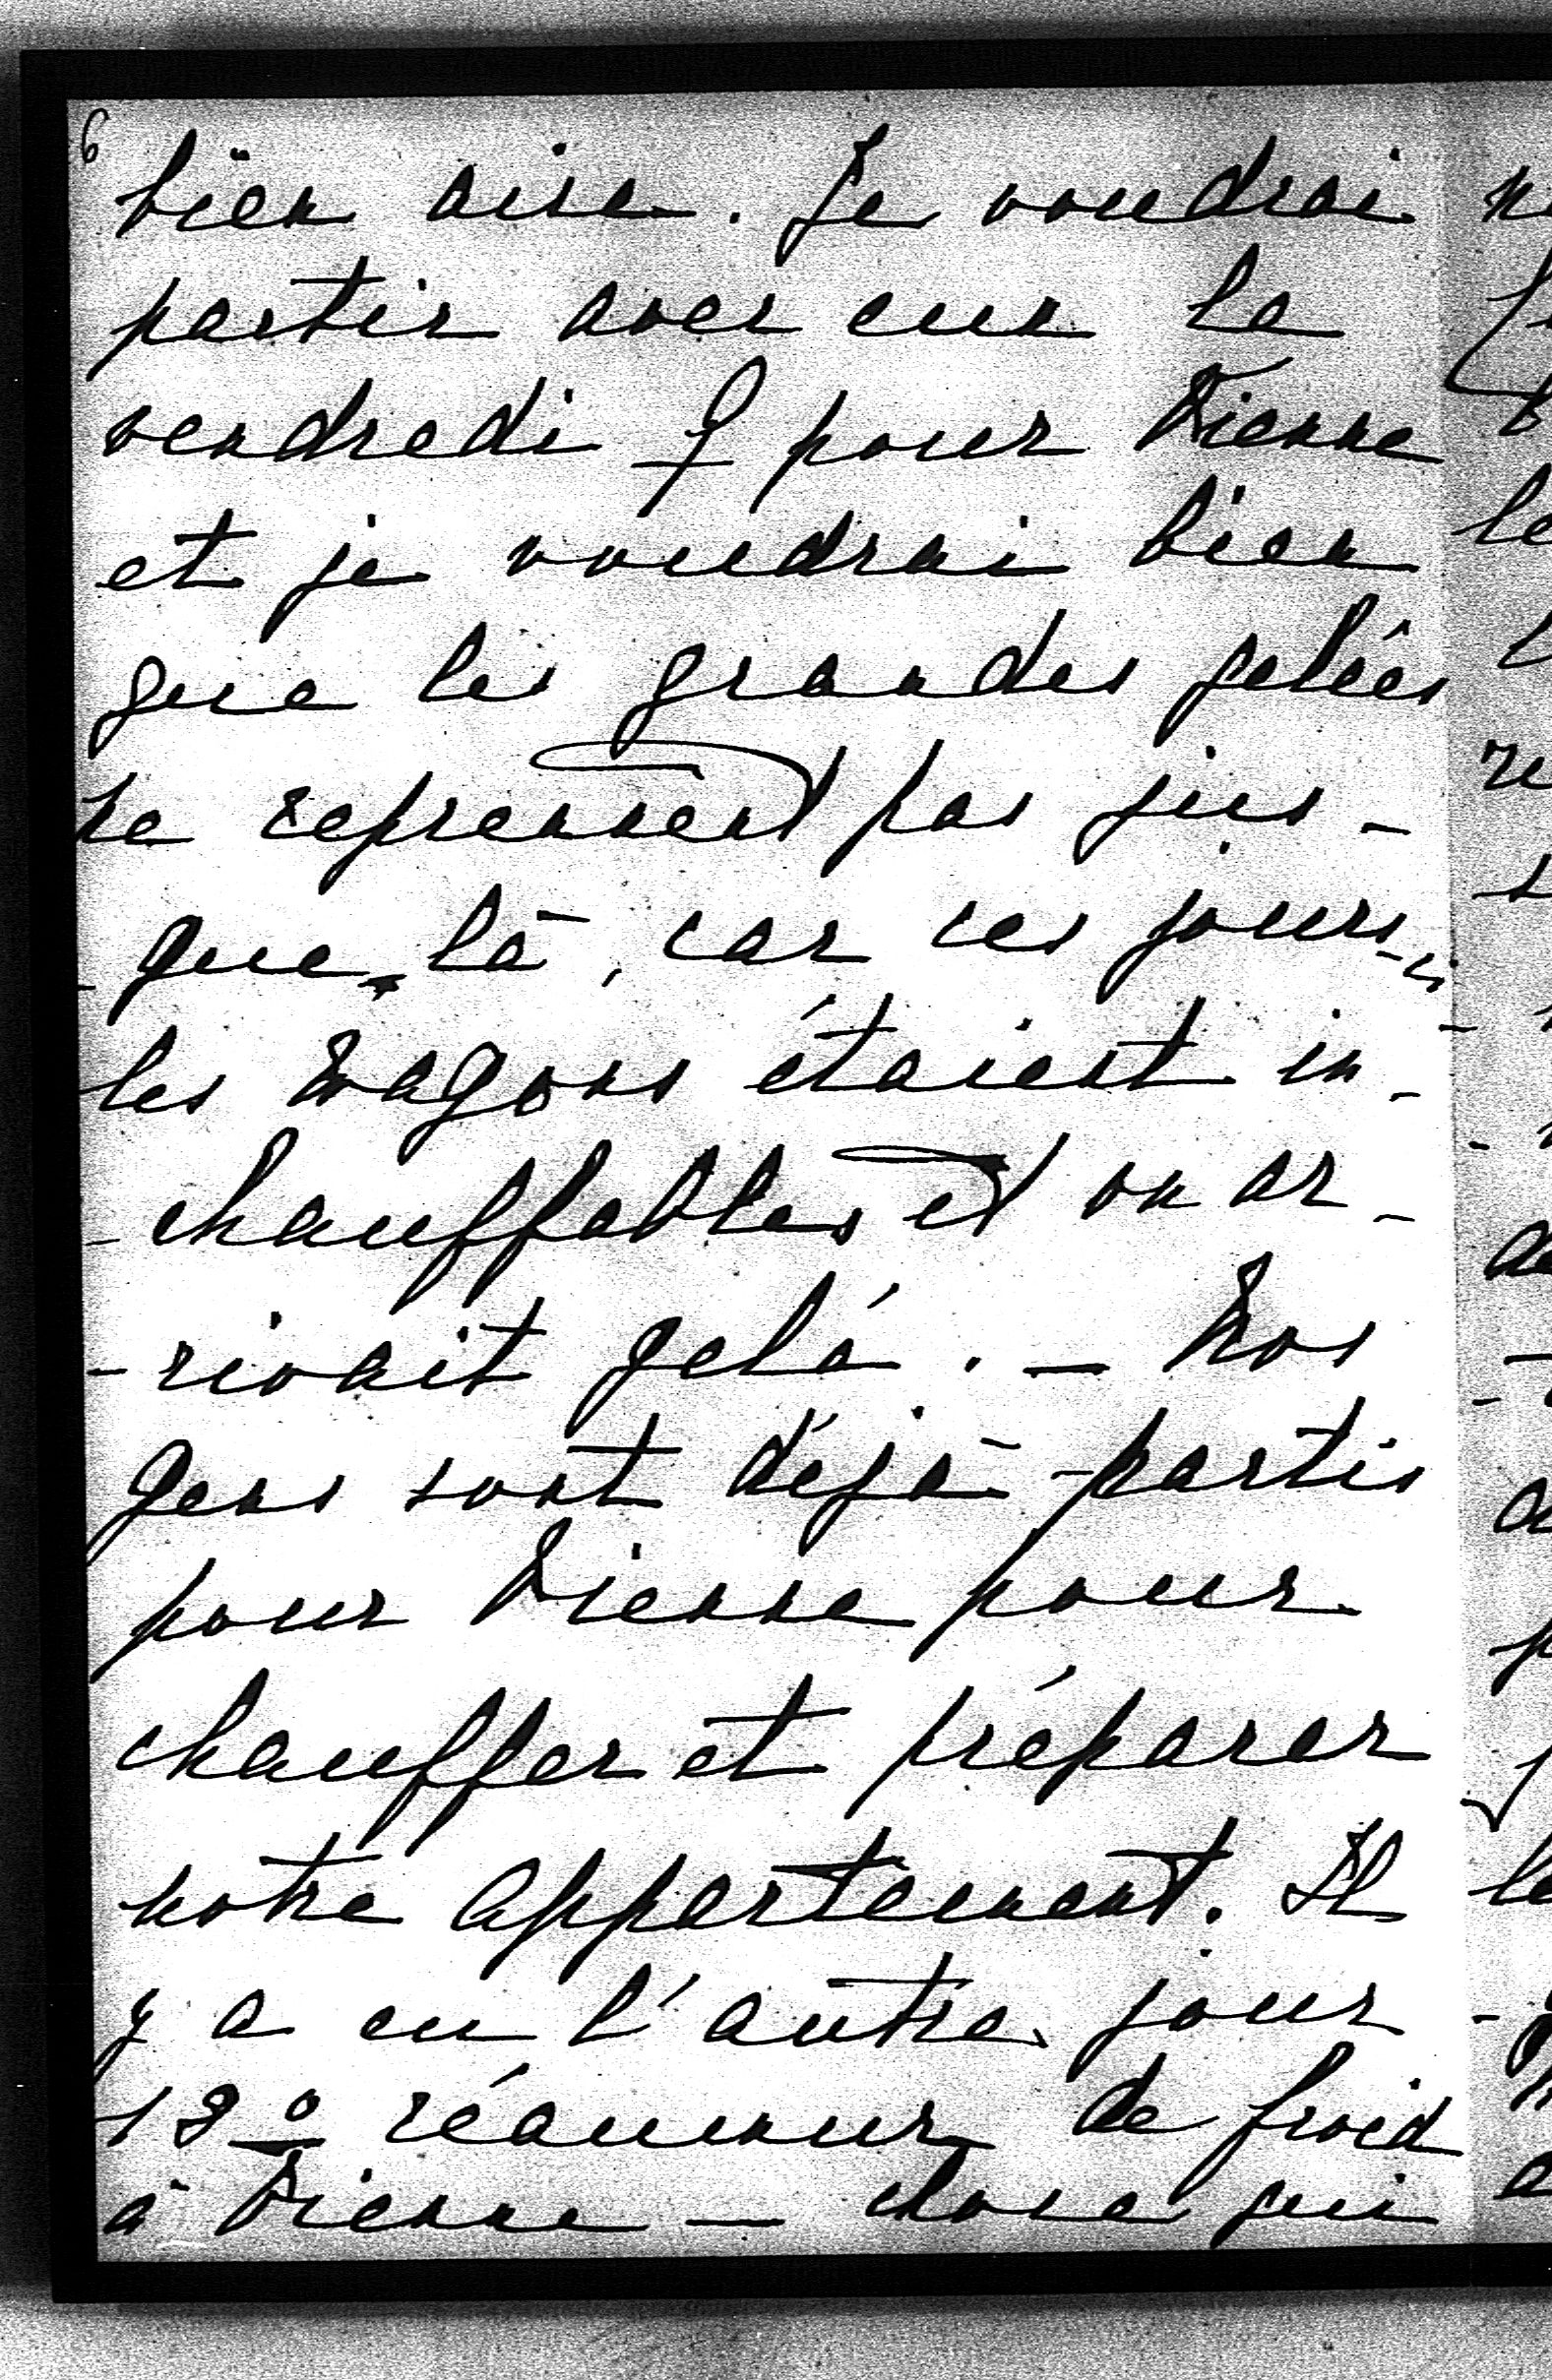 6
bien aise. Je voudrai
partir avec eux le
vendredi 9 pour Vienne
et je voudrai bien
que les grandes gelées
ne reprennent pas jus-
-que-là, car ces jours-ci
les wagons étaient in-
-chauffables et on ar-
-rivait gelé. — Nos
gens sont déjà partis
pour Vienne pour
chauffer et préparer
notre appartement. Il
y a eu l'autre jour
18° réaumur de froid
à Vienne — chose qui